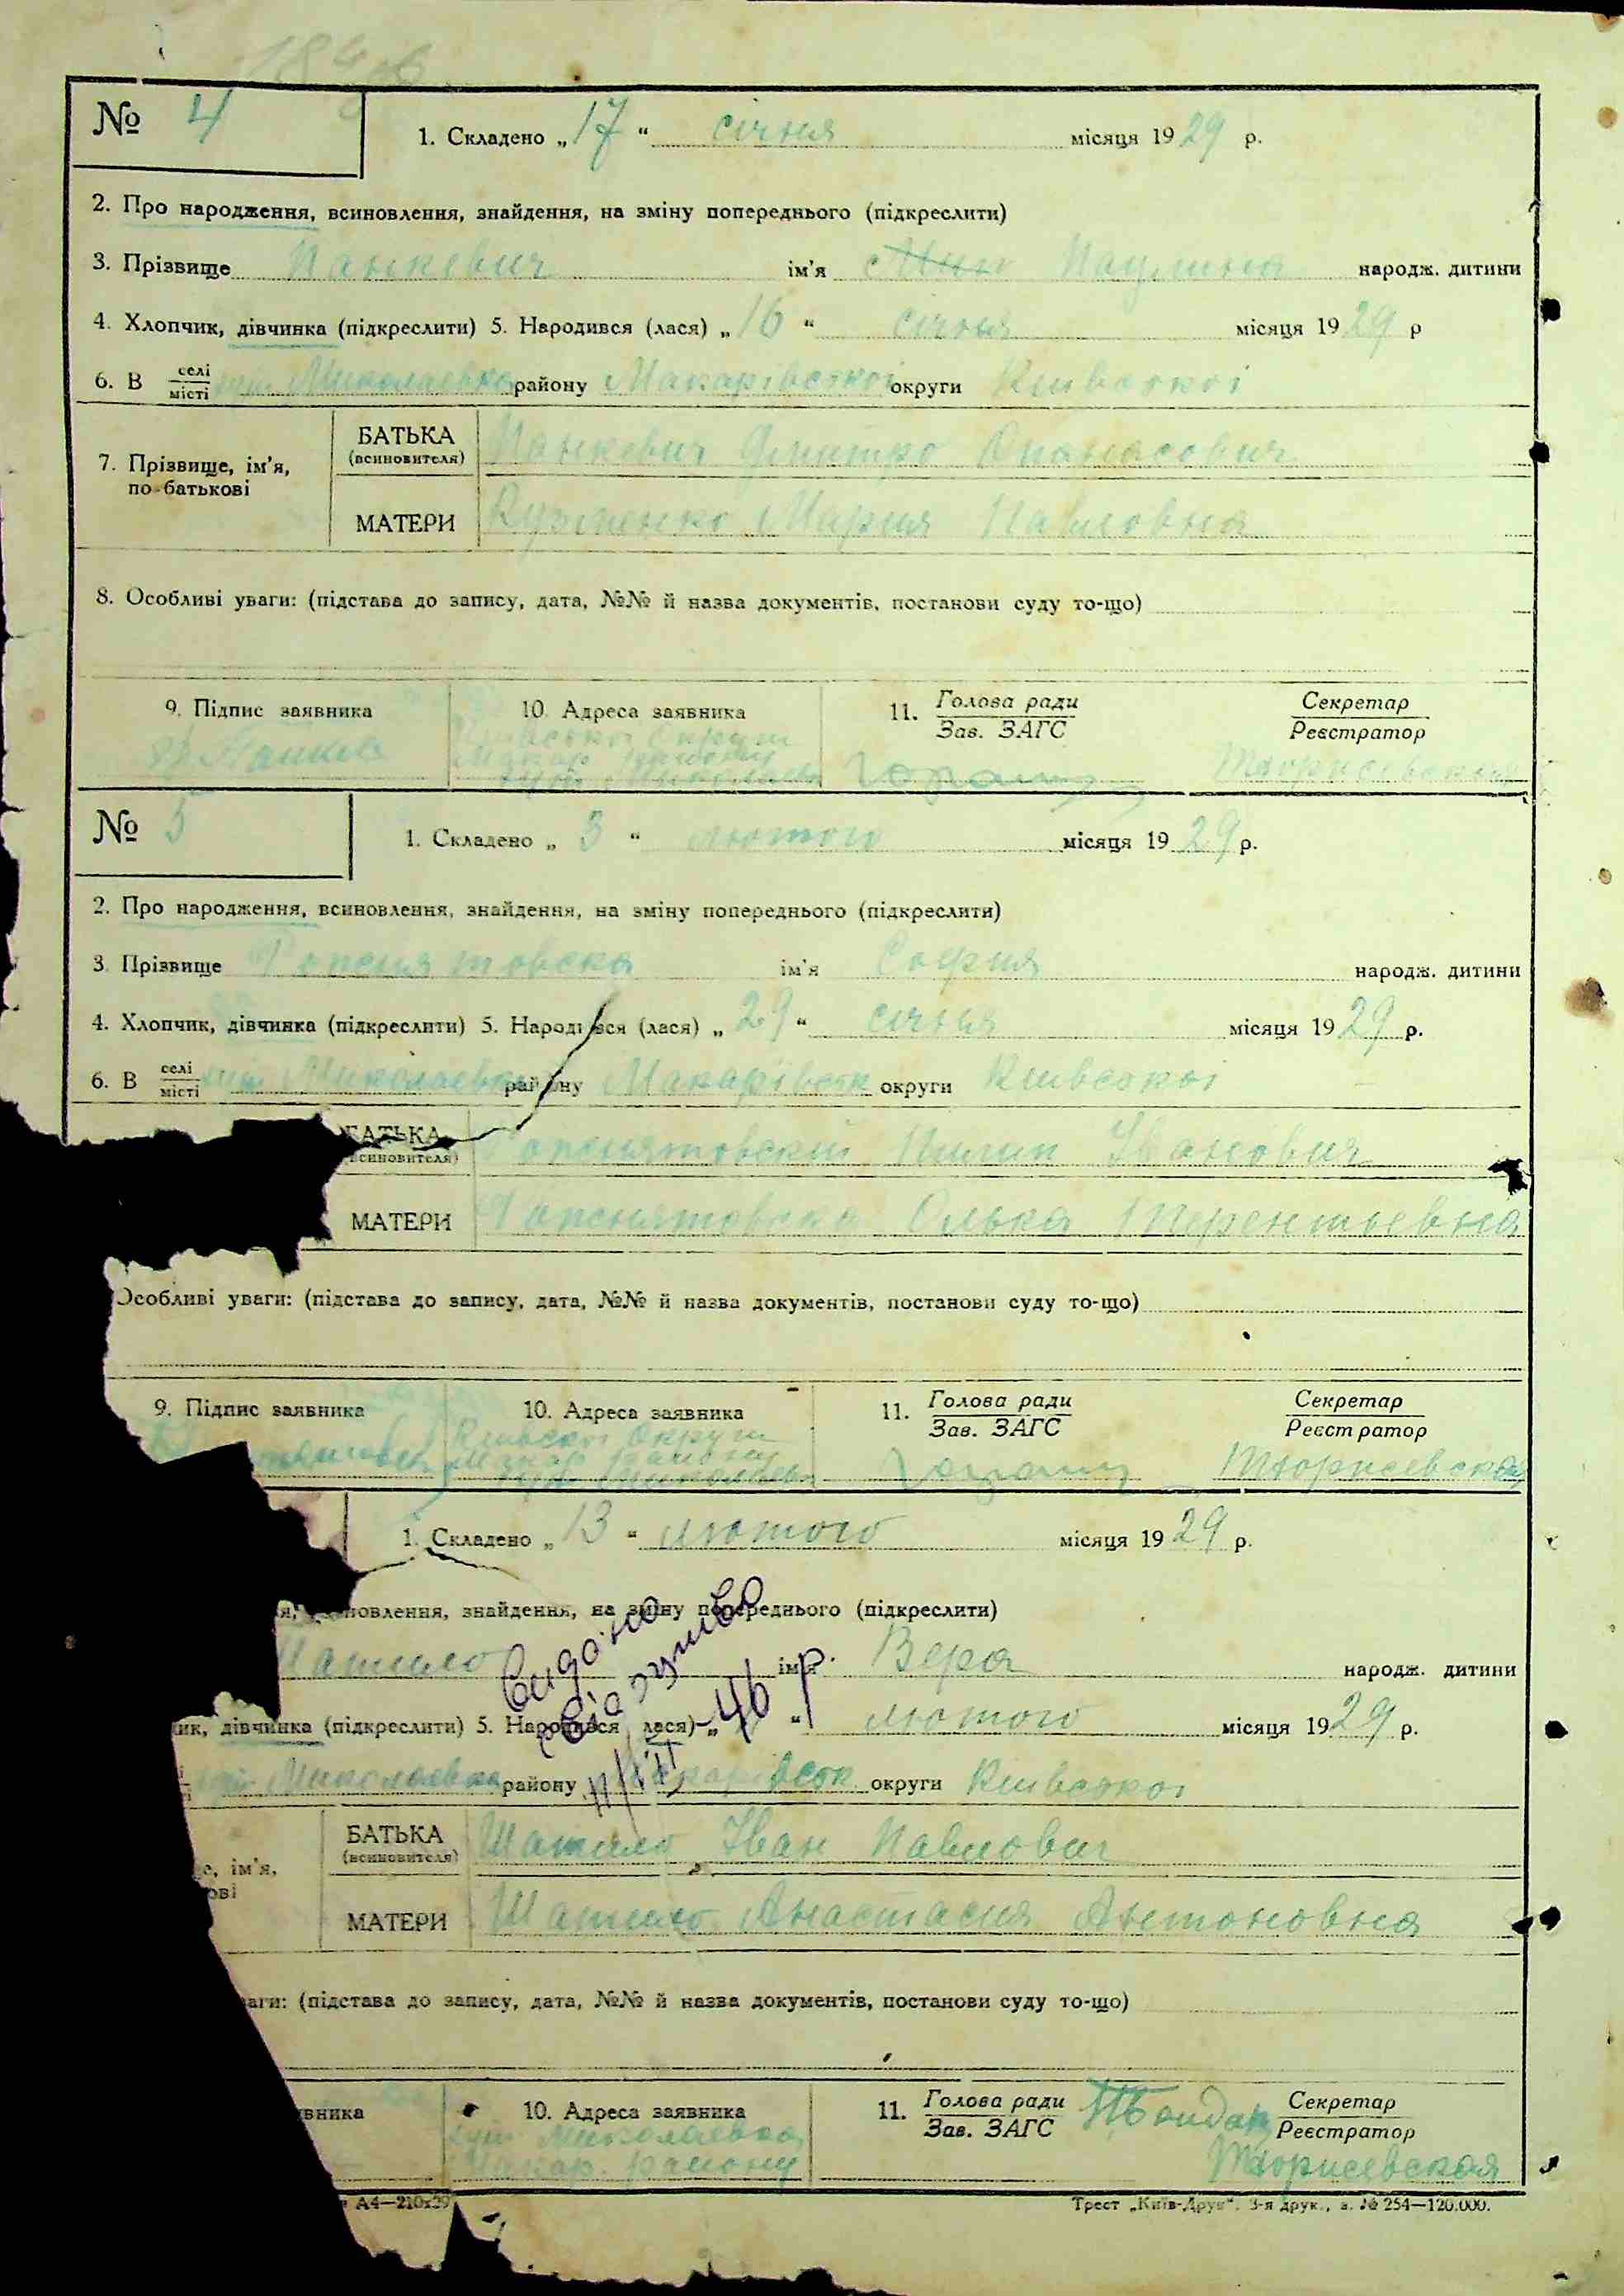 № 4 1. Складено „17“ січня місяця 1929 р.
2. Про народження, всиновлення, знайдення, на зміну попереднього (підкреслити)
3. Прізвище Панкевич ім'я Паулина народж. дитини
4. Хлопчик, дівчинка (підкреслити) 5. Народився (лася) „16“ січня місяця 1929 р
6. В селі/місті хут. Миколаевка району Макарівської округи Київської
7. Прізвище, ім'я, по-батькові
БАТЬКА (всиновителя) Панкевич Дмитро Опанасович
МАТЕРИ Кузьменко Мария Павловна
8. Особливі уваги: (підстава до запису, дата, №№ й назва документів, постанови суду то-що)
9. Підпис заявника 10. Адреса заявника 11. Голова ради / Зав. ЗАГС Секретар / Реєстратор
Київської Округи
Макар. району
хут. Миколаевка
№ 5 1. Складено „3“ лютого місяця 1929 р.
2. Про народження, всиновлення, знайдення, на зміну попереднього (підкреслити)
3. Прізвище ім'я София народж. дитини
4. Хлопчик, дівчинка (підкреслити) 5. Народився (лася) „29“ січня місяця 1929 р.
6. В селі/місті хут. Миколаевка району Макарівськ округи Київської
БАТЬКА (всиновителя) Пилип Іванович
МАТЕРИ Олька Терентьевна
Особливі уваги: (підстава до запису, дата, №№ й назва документів, постанови суду то-що)
9. Підпис заявника 10. Адреса заявника 11. Голова ради / Зав. ЗАГС Секретар / Реєстратор
Київської Округи
Макар. району
хут. Миколаевка
1. Складено „13“ лютого місяця 1929 р.
я, всиновлення, знайдення, на зміну попереднього (підкреслити)
Шатило ім'я Вера народж. дитини
Видано
свідоцтво
-46 р.
ик, дівчинка (підкреслити) 5. Народився (лася) „ “ лютого місяця 1929 р.
хут. Миколаевка району Макарівськ округи Київської
е, ім'я,
ові
БАТЬКА (всиновителя) Шатило Іван Павлович
МАТЕРИ Шатило Анастасия Антоновна
ваги: (підстава до запису, дата, №№ й назва документів, постанови суду то-що)
явника 10. Адреса заявника 11. Голова ради / Зав. ЗАГС Секретар / Реєстратор
хут. Миколаевка
Макар. району
А4—210х29 Трест „Київ-Друк“. 3-я друк., з. № 254—120.000.